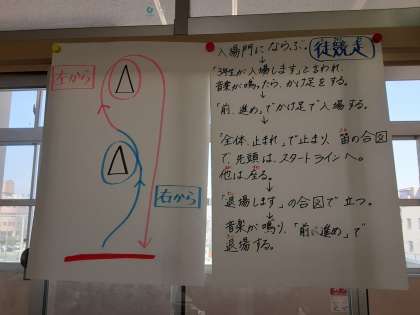 左から
右から
入場門にならぶ。徒競走
「3年生が入場します」と言われ、
音楽が鳴ったら、かけ足をする。
↓
「前、進め」でかけ足で入場する。
↓
「全体、止まれ」で止まり、笛の合図
で、先頭は、スタートラインへ。
他は、座る。
↓
「退場します」の合図で立つ。
↓
音楽が鳴り、「前に進め」で
退場する。